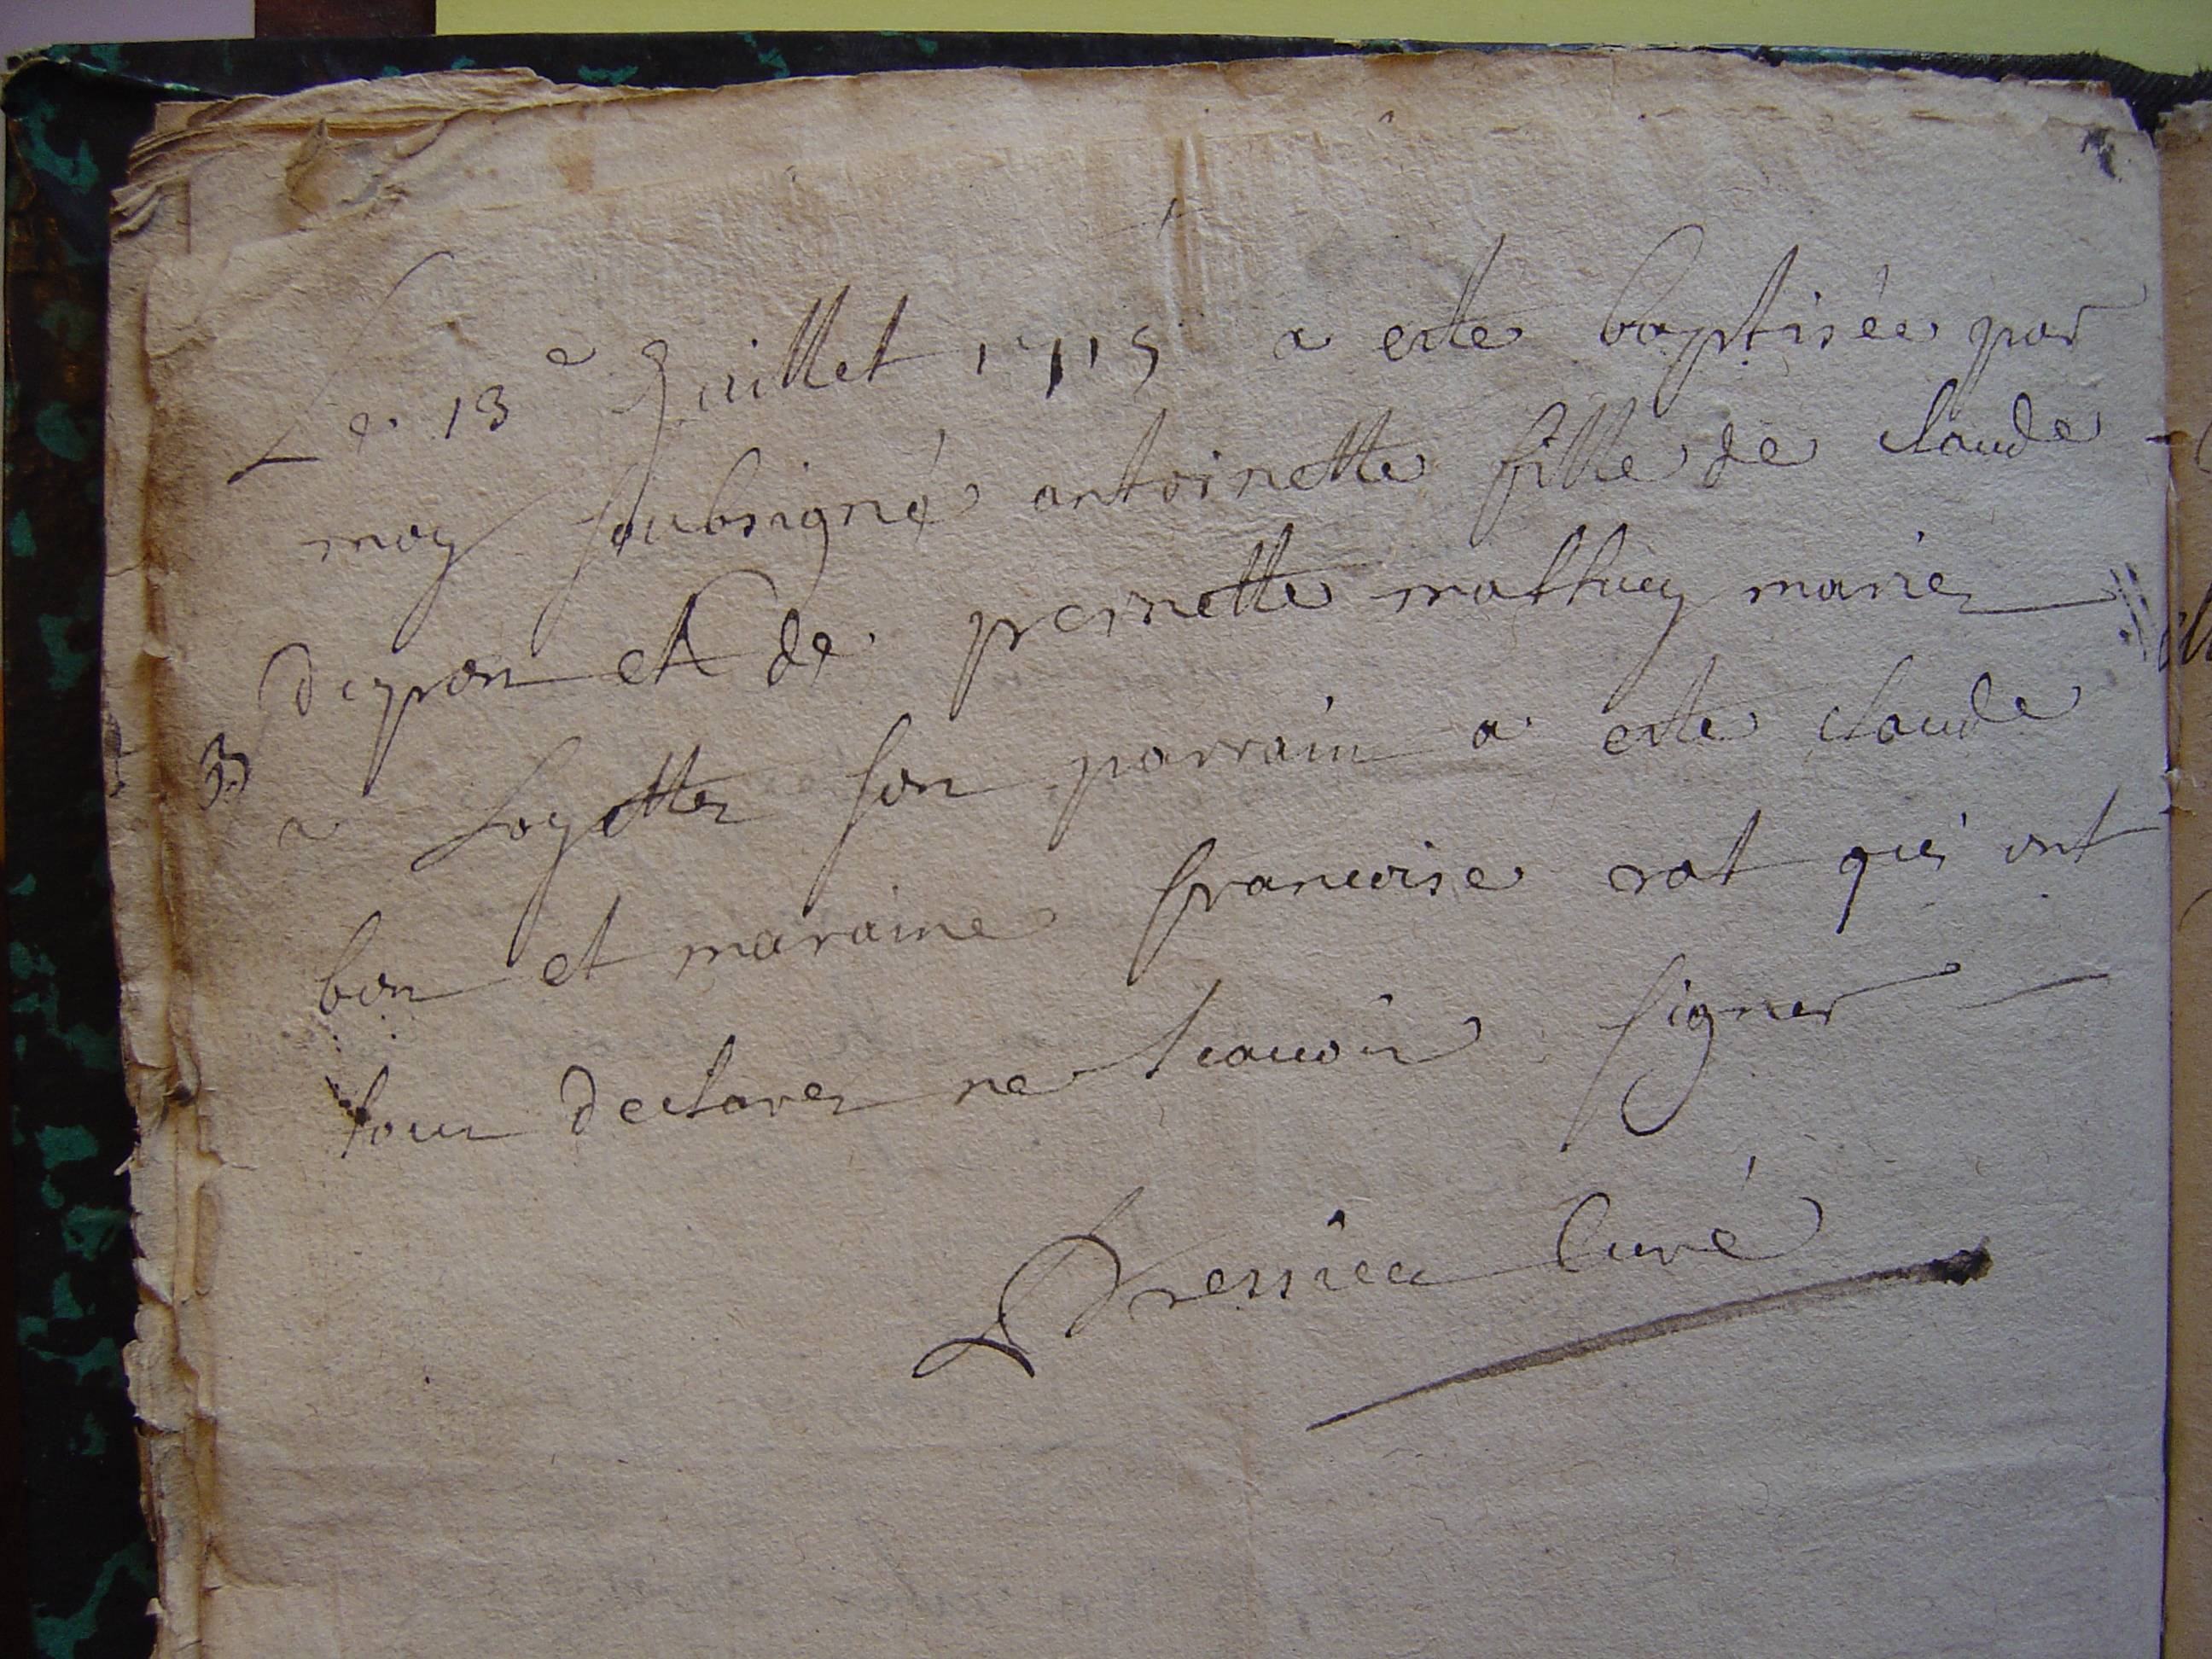 Le 13e Juillet 1715 a este baptisée par
moy soubsigné antoinette fille de claude
et de pernette mathuy mariez
a loyettes son parrain a este claude
bon et maraine francoise rat qui ont
tous declarez ne scauoir signer
Dressieu Curé